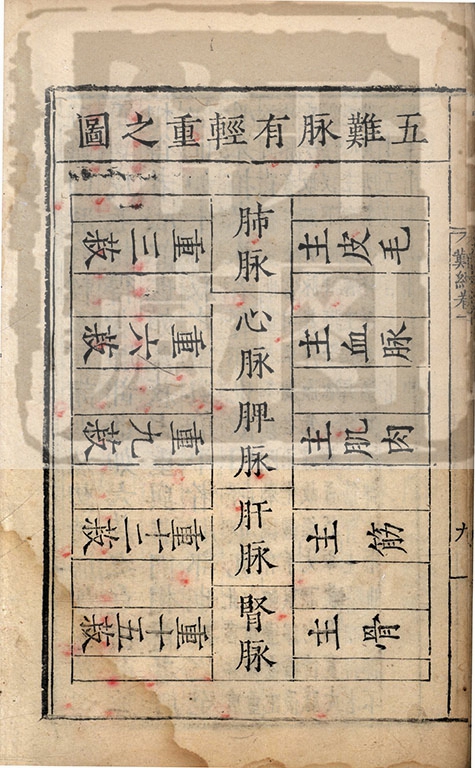 五難脉有輕重之圖
主皮毛
肺脉
重三菽
主血脉
心脉
重六菽
主肌肉
脾脉
重九菽
主筋
肝脉
重十二菽
主骨
腎脉
重十五菽
難經卷
九